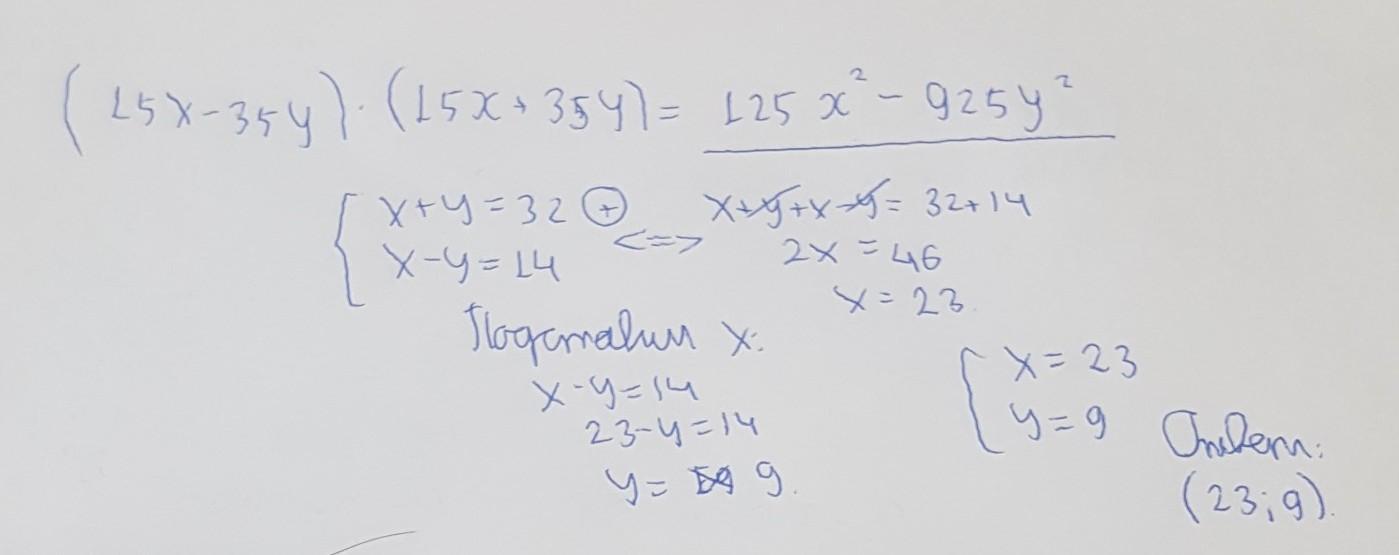 (15x-35y)·(15x+35y)= 125x²-925y²
{ x+y=32 ⊕ <=> x+y+x-y=32+14
x-y=14 2x=46
x=23.
Подставим x:
x-y=14
23-y=14
y= 9.
{ x=23
y=9
Ответ:
(23;9).